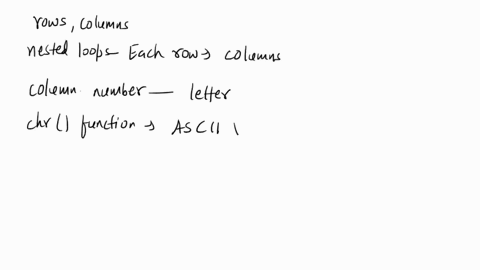 rows, columns
nested loops - Each row → columns
column number — letter
chr() function → ASCII \